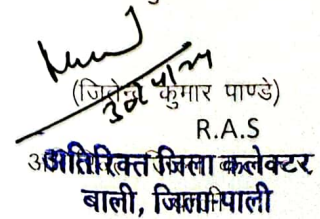 (जितेन्द्र कुमार पाण्डे)
R.A.S
अतिरिक्त जिला कलेक्टर
बाली, जिला पाली